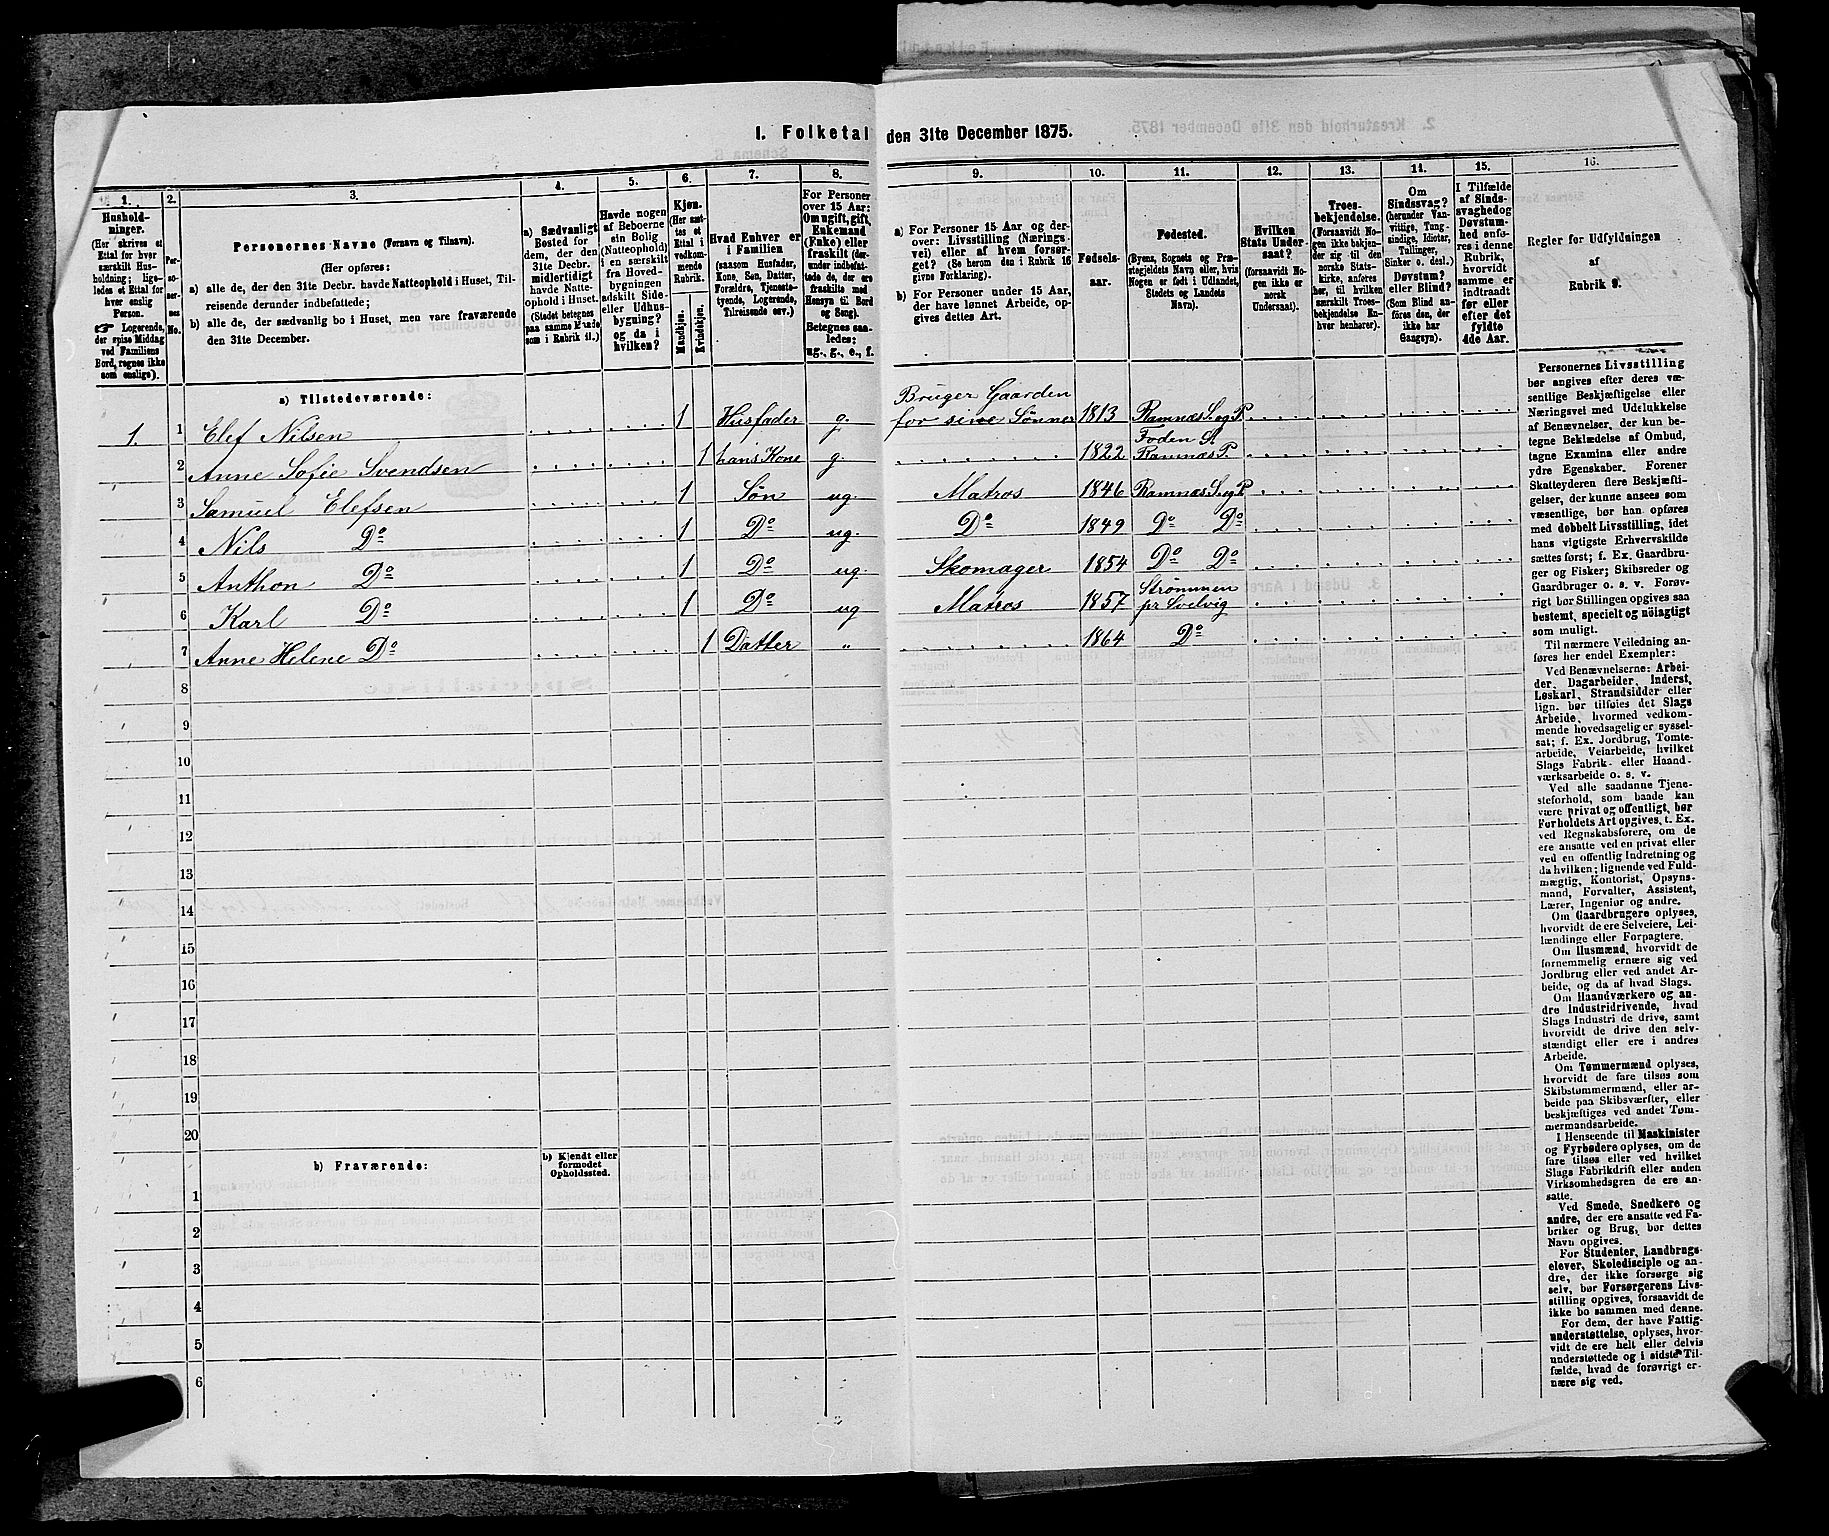 I. Folketal den 31te December 1875.
1. 2. 3. 4. 5. 6. 7. 8. 9. 10. 11. 12. 13. 14. 15. 16.
Hushold-
ninger.
(Her skrives et
Ettal for hver
særskilt Hus-
holdning; lige-
ledes et Ettal for
hver enslig
Person.
☞ Logerende,
der spise Middag
ved Familiens
Bord, regnes ikke
som enslige).
Per-
so-
ner-
nes
No.
Personernes Navne (Fornavn og Tilnavn).
(Her opføres:
a) alle de, der den 31te Decbr. havde Natteophold i Huset, Til-
reisende derunder indbefattede;
b) alle de, der sædvanlig bo i Huset, men vare fraværende
den 31te December.
a) Sædvanligt
Bosted for
dem, der den
31te Decbr.
midlertidigt
havde Natte-
ophold i Huset.
(Stedet betegnes
paa samme Maade
som i Rubrik 11.)
Havde nogen
af Beboerne
sin Bolig
(Natteophold)
i en særskilt
fra Hoved-
bygningen
adskilt Side-
eller Udhus-
bygning?
og da i
hvilken?
Kjøn.
(Her sæt-
tes et
Ettal i
vedkom-
mende
Rubrik.
Mandkjøn.
Kvindekjøn.
Hvad Enhver er
i Familien
(saasom Husfader,
Kone, Søn, Datter,
Forældre, Tjeneste-
tyende, Logerende,
Tilreisende osv.)
For Personer
over 15 Aar:
Om ugift, gift,
Enkemand
(Enke) eller
fraskilt (der-
under indbefat-
tede de, der ere
fraskilte med
Hensyn til Bord
og Seng).
Betegnes saa-
ledes:
ug., g., e., f.
a) For Personer 15 Aar og der-
over: Livsstilling (Nærings-
vei) eller af hvem forsør-
get? (Se herom den i Rubrik 16
givne Forklaring).
b) For Personer under 15 Aar,
der have lønnet Arbeide, op-
gives dettes Art.
Fødsels-
aar.
Fødested.
(Byens, Sognets og Præ-
stegjeldets Navn eller, hvis
Nogen er født i Udlandet,
Stedets og Landets
Navn).
Hvilken
Stats Under-
saat?
(forsaavidt No-
gen ikke er
norsk
Undersaat).
Troes-
bekjendelse.
(Forsaavidt No-
gen ikke bekjen-
der sig til den
norske Stats-
kirke, anføres
her, til hvilken
særskilt Troes-
bekjendelse En-
hver henhører).
Om
Sindssvag?
(herunder Van-
vittige, Tung-
sindige, Idioter,
Tullinger,
Sinker o. desl.)
Døvstum?
eller Blind?
(Som Blind an-
føres den, der
ikke har
Gangsyn).
I Tilfælde
af Sinds-
svaghed og
Døvstum-
hed anfø-
res i denne
Rubrik,
hvorvidt
samme er
indtraadt
før eller
efter det
fyldte
4de Aar.
Regler for Udfyldningen
af
Rubrik 9.
a) Tilstedeværende:
1. 1 Elef Nilsen 1 Husfader g. Bruger Gaarden for sine Sønner 1813 Ramnæs S. og P
2 Anne Sofie Svendsen 1 hans Kone g. 1822 Foden S. Ramnæs P.
3 Samuel Elefsen 1 Søn ug. Matros 1846 Ramnæs S. og P
4 Nils Do 1 Do ug. Do 1849 Do Do
5 Anthon Do 1 Do ug. Skomager 1854 Do Do
6 Karl Do 1 Do ug Matros 1857 Strømmen pr Svelvig
7 Anne Helene Do 1 Datter " 1864 Do
8
9
10
11
12
13
14
15
16
17
18
19
20
b) Fraværende:
b) Kjendt eller
formodet
Opholdssted.
1
2
3
4
5
6
Personernes Livsstilling
bør angives efter deres væ-
sentlige Beskjæftigelse eller
Næringsvei med Udelukkelse
af Benævnelser, der kun be-
tegne Beklædelse af Ombud,
tagne Examina eller andre
ydre Egenskaber. Forener
Skatteyderen flere Beskjæfti-
gelser, der kunne ansees som
væsentlige, bør han opføres
med dobbelt Livsstilling, idet
hans vigtigste Erhvervskilde
sættes først; f. Ex. Gaardbru-
ger og Fisker; Skibsreder og
Gaardbruger o. s. v. Forøv-
rigt bør Stillingen opgives saa
bestemt, specielt og nøiagtigt
som muligt.
Til nærmere Veiledning an-
føres her endel Exempler:
Ved Benævnelserne: Arbei-
der, Dagarbeider, Inderst,
Løskarl, Strandsidder eller
lign. bør tilføies det Slags
Arbeide, hvormed vedkom-
mende hovedsagelig er syssel-
sat; f. Ex. Jordbrug, Tomte-
arbeide, Veiarbeide, hvilket
Slags Fabrik- eller Haand-
værksarbeide o. s. v.
Ved alle saadanne Tjene-
steforhold, som baade kan
være privat og offentligt, bør
Forholdets Art opgives, t. Ex.
ved Regnskabsførere, om de
ere ansatte ved en privat eller
ved en offentlig Indretning og
da hvilken; lignende ved Fuld-
mægtig, Kontorist, Opsyns-
mand, Forvalter, Assistent,
Lærer, Ingeniør og andre.
Om Gaardbrugere oplyses,
hvorvidt de ere Selveiere, Lei-
lændinge eller Forpagtere.
Om Husmænd, hvorvidt de
fornemmelig ernære sig ved
Jordbrug eller ved andet Ar-
beide, og da af hvad Slags.
Om Haandværkere og an-
dre Industridrivende, hvad
Slags Industri de drive, samt
hvorvidt de drive den selv-
stændigt eller ere i andres
Arbeide.
Om Tømmermænd oplyses,
hvorvidt de fare tilsøs som
Skibstømmermænd, eller ar-
beide paa Skibsværfter, eller
beskjæftiges ved andet Tøm-
mermandsarbeide.
I Henseende til Maskinister
og Fyrbødere oplyses, om de
fare tilsøs eller ved hvilket
Slags Fabrikdrift eller anden
Virksomhedsgren de ere an-
satte.
Ved Smede, Snedkere og
andre, der ere ansatte ved Fa-
briker og Brug, bør dettes
Navn opgives.
For Studenter, Landbrugs-
elever, Skoledisciple og an-
dre, der ikke forsørge sig
selv, bør Forsørgerens Livs-
stilling opgives, forsaavidt de
ikke bo sammen med denne.
For dem, der have Fattig-
understøttelse, oplyses, hvor-
vidt de ere helt eller delvis
understøttede og i sidste Til-
fælde, hvad de forøvrigt er-
nære sig ved.